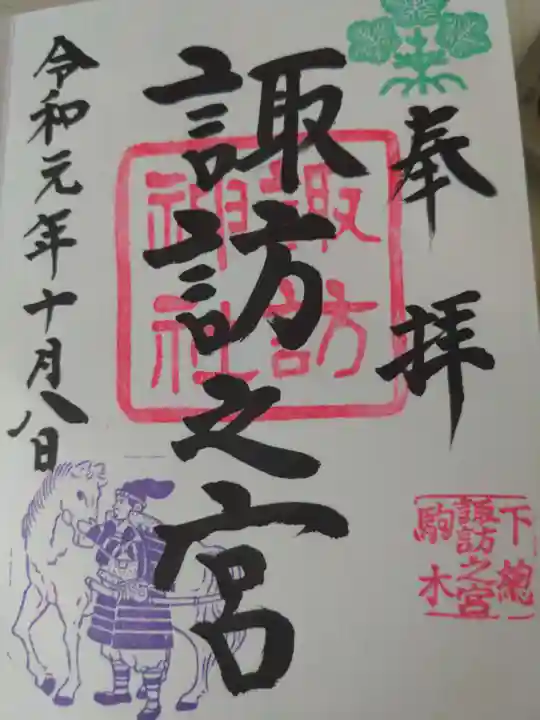 奉拝
諏訪之宮
諏訪
神社
下總
諏訪之宮
駒木
令和元年十月八日